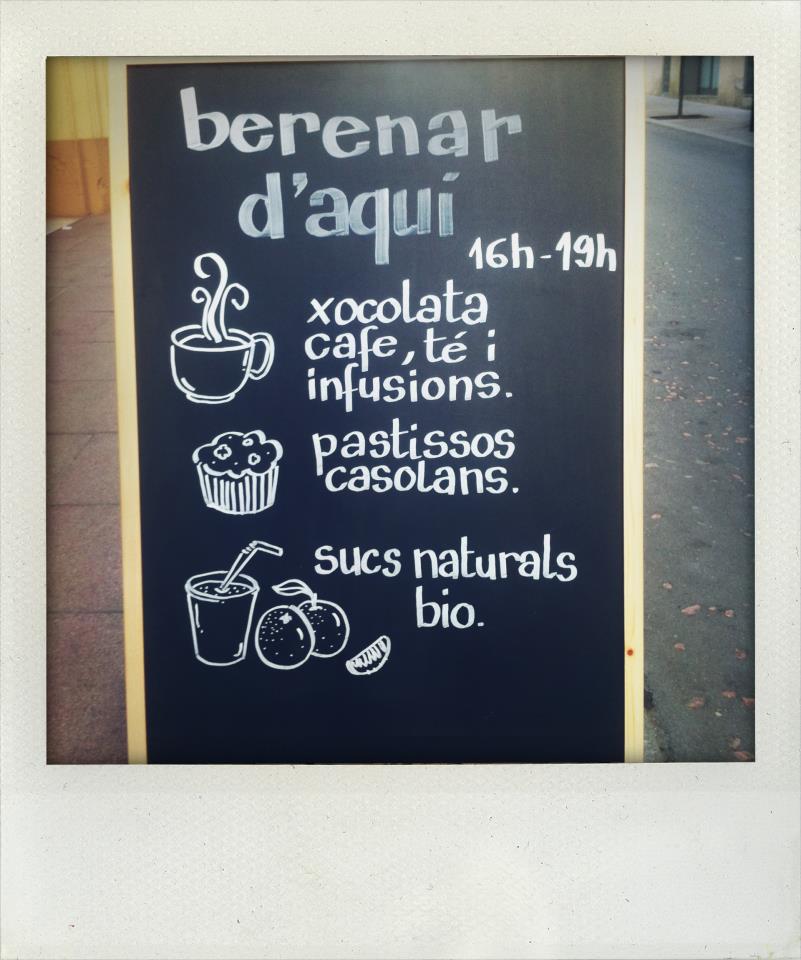 berenar
d'aquí
16h-19h
xocolata
cafe, té i
infusions.
pastissos
casolans.
sucs naturals
bio.